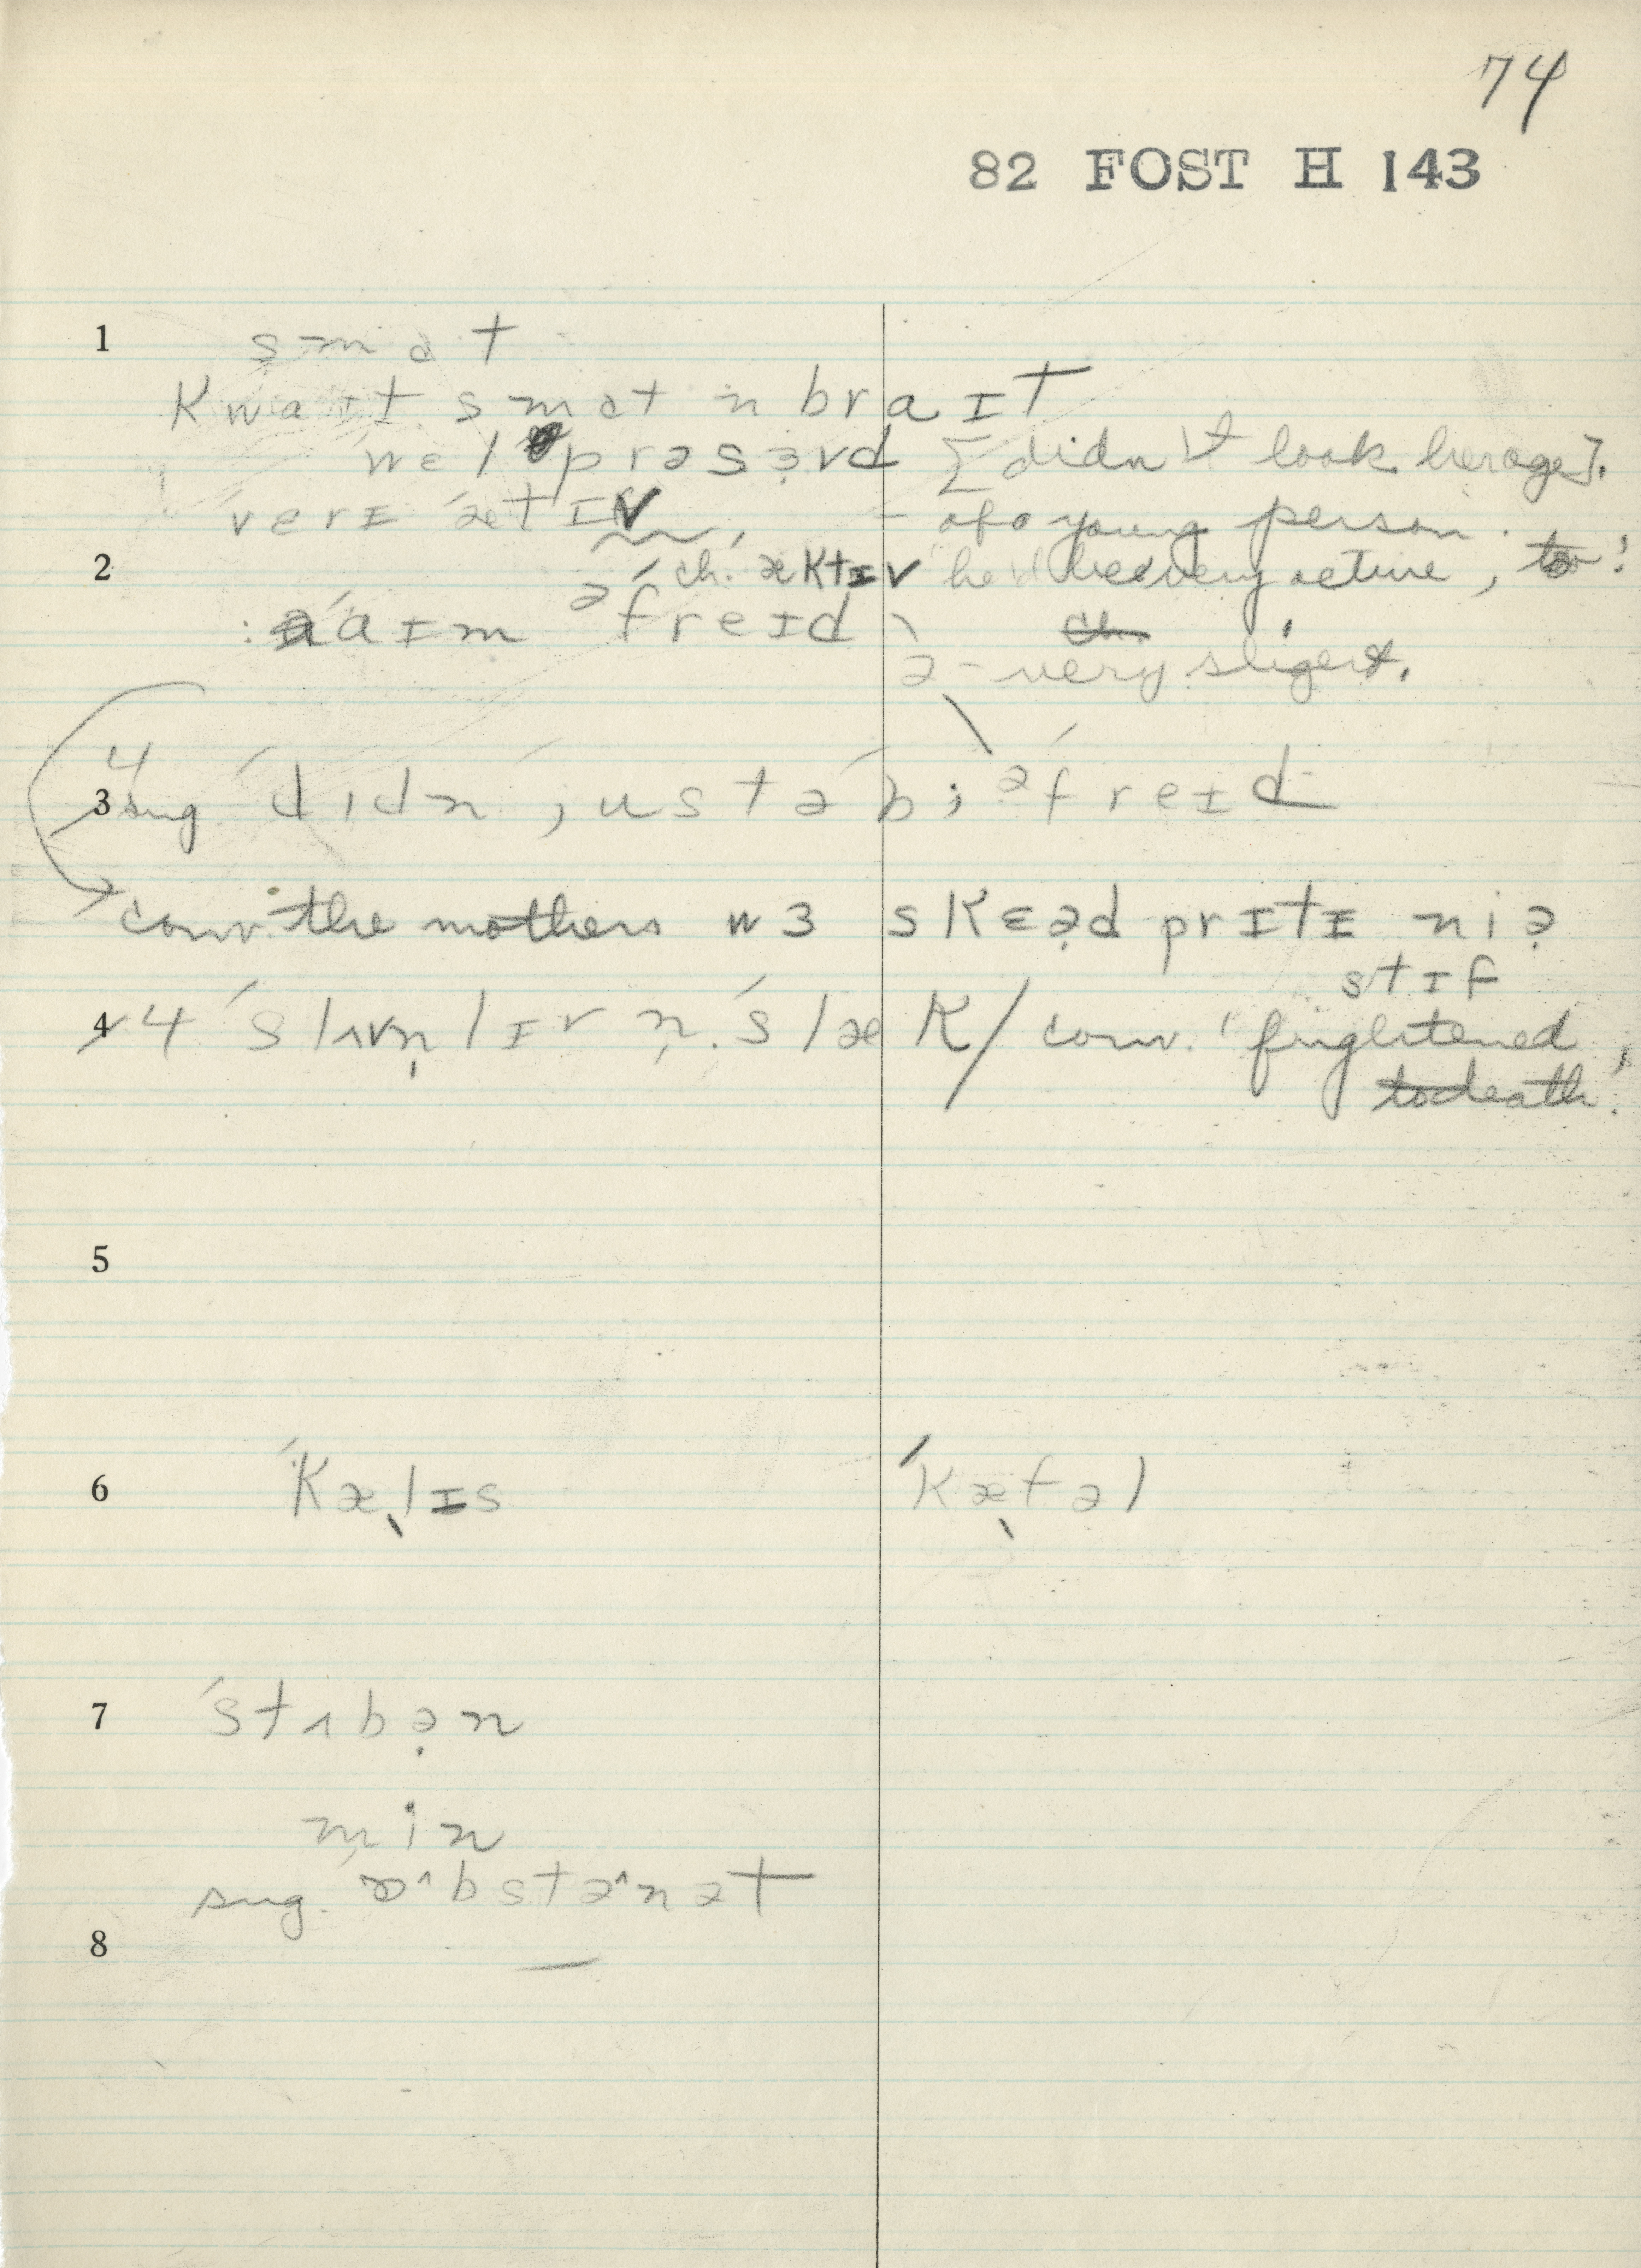 74
82 FOST H 143
1
smat
kwaɪt smat n braɪt
ˈwel prəsɜvd [didn't look her age].
ˈverɪ ˈætɪv – of a young person.
2 ch. ˈæktɪv he very active, too!
: ˈaɪm əˈfreɪd
ə – very slight.
3 4 sug ˈdɪdn justəˈbi əˈfreɪd
conv. the mothers wɜ skɛəd prɪtɪ niə
stɪf
4 4 ˈslʌvn̩lɪ r n̩ ˈslæk / conv. 'frightened
to death.'
5
6 ˈkælɪs ˈkætəl
7 ˈstʌbən
min
sug. ɒˆbstəˆnət
8